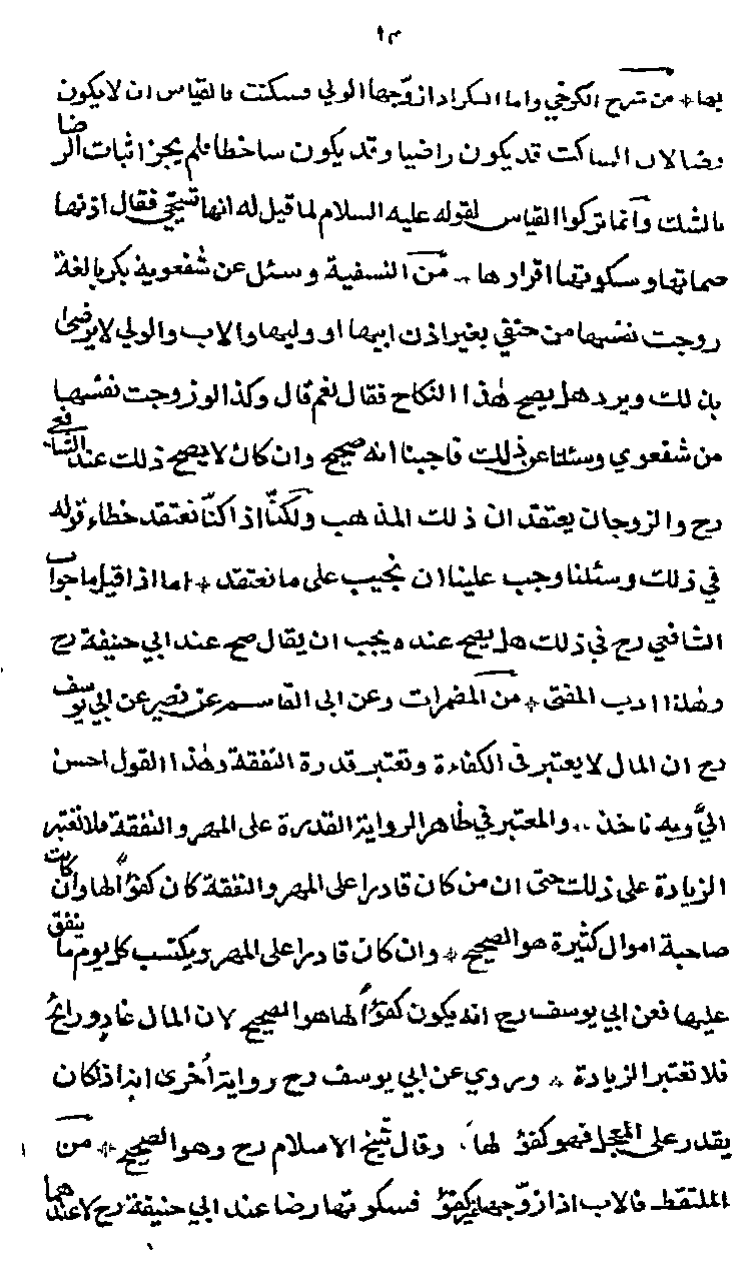 ٩٣
بها * من شرح الكرخي واما البكر اذا زوّجها الولي فسكتت فالقياس ان لا يكون
رضا لان الساكت قد يكون راضيا وقد يكون ساخطا فلم يجز اثبات الرضا
بالشك وانما تركوا القياس لقوله عليه السلام لما قيل له انها تستحي فقال اذنها
صماتها وسكوتها اقرارها * من النسفية وسئل عن شفعوية بكر بالغة
زوجت نفسها من حنفي بغير اذن ابيها او وليها والاب والولي لا يرضى
بذلك ويرد هل يصح هذا النكاح فقال نعم قال وكذا لو زوجت نفسها
من شفعوي وسئلنا عن ذلك فاجبنا انه صحيح وان كان لا يصح ذلك عند الشافعي
رح والزوجان يعتقدان ذلك المذهب ولكنّا اذا كنّا نعتقد خطاء قوله
في ذلك وسئلنا وجب علينا ان نجيب على ما نعتقد * اما اذا قيل ما جواب
الشافعي رح في ذلك هل يصح عنده يجب ان يقال صح عند ابي حنيفة رح
وهذا ادب المفتى * من المضمرات وعن ابى القاسم عن نصير عن ابي يوسف
رح ان المال لا يعتبر فى الكفاءة وتعتبر قدرة النفقة وهذا القول احسن
اليّ وبه ناخذ .. والمعتبر في ظاهر الرواية القدرة على المهر والنفقة فلا تعتبر
الزيادة على ذلك حتى ان من كان قادرا على المهر والنفقة كان كفؤاً لها وان كانت
صاحبة اموال كثيرة هو الصحيح * وان كان قادرا على المهر ويكتسب كل يوم ما ينفق
عليها فعن ابي يوسف رح انه يكون كفؤاً لها هو الصحيح لان المال غاد ورائح
فلا تعتبر الزيادة * وروي عن ابي يوسف رح رواية أخرى انه اذا كان
يقدر على المعجل فهو كفؤ لها . وقال شيخ الاسلام رح وهو الصحيح * من
الملتقط فالاب اذا زوّجها غير كفؤ فسكوتها رضا عند ابي حنيفة رح لا عندهما